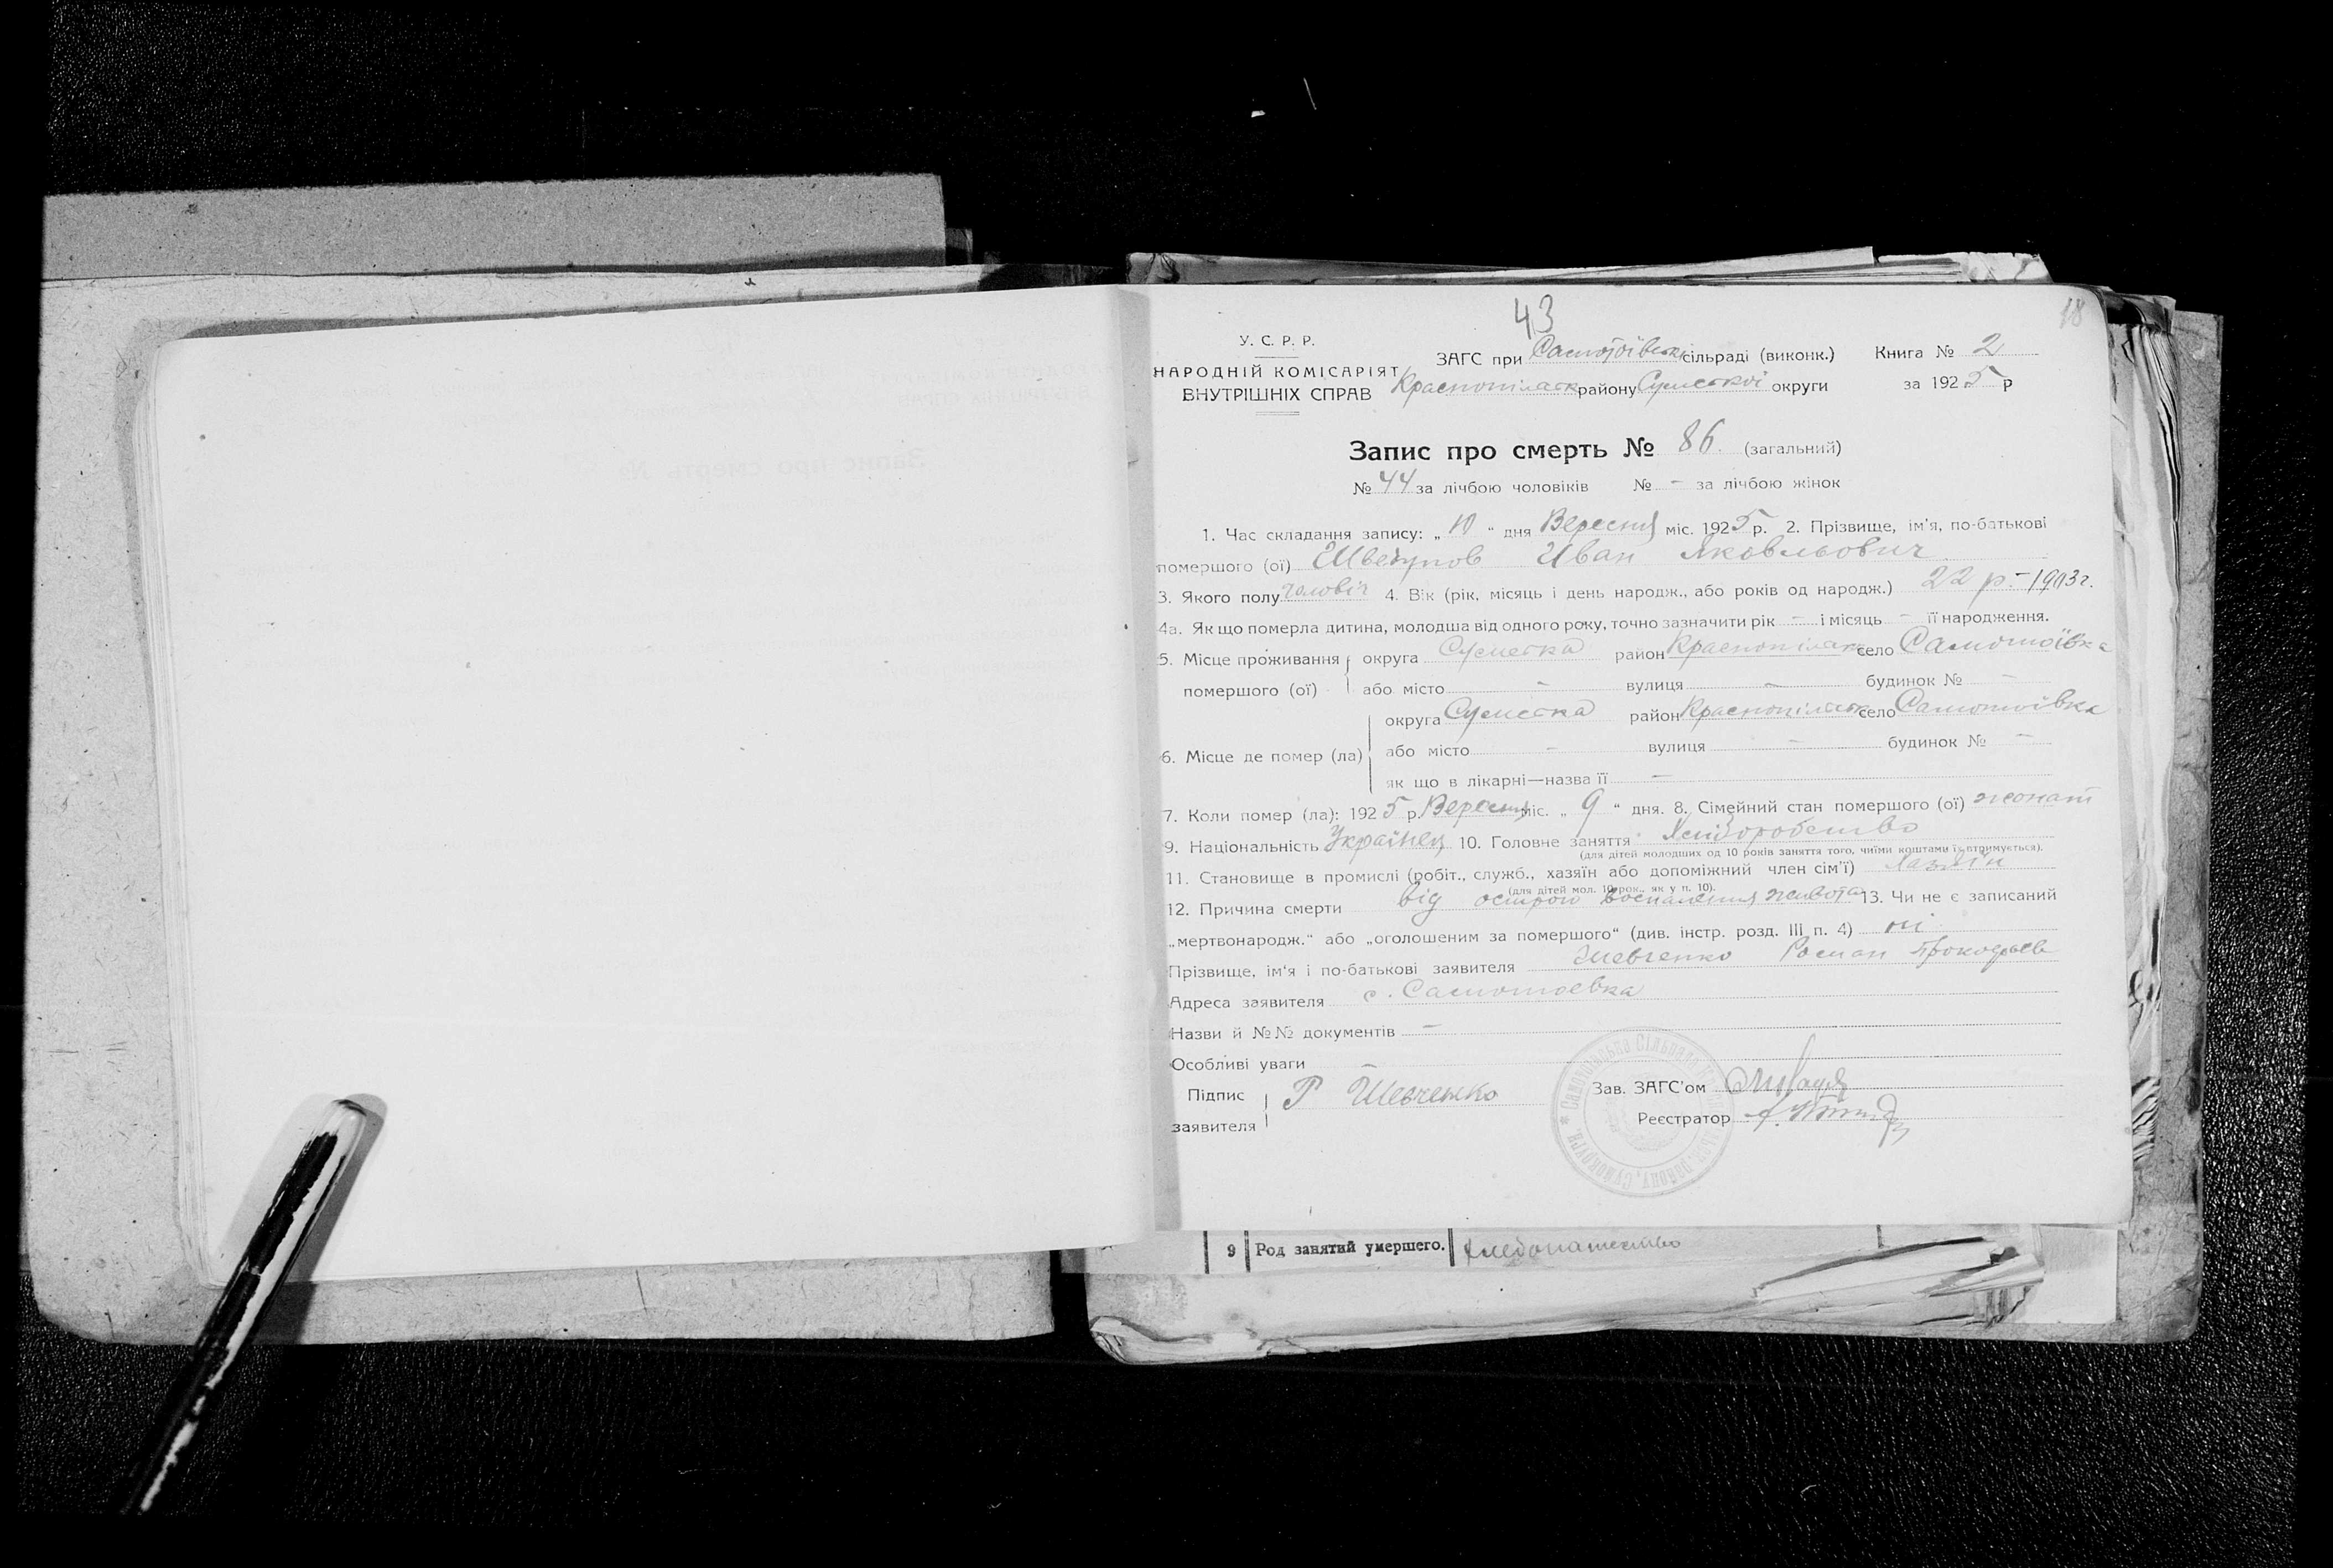 43
18
У. С. Р. Р.
НАРОДНІЙ КОМІСАРІЯТ
ВНУТРІШНІХ СПРАВ
ЗАГС при Самотоівськ сільраді (виконк.) Книга № 2
Краснопілськ району Сумської округи за 1925 р
Запис про смерть № 86. (загальний)
№ 44 за лічбою чоловіків № – за лічбою жінок
1. Час складання запису: „ 10 “ дня Вересня міс. 1925 р. 2. Прізвище, ім'я, по-батькові
помершого (ої) Иван Яковльович
3. Якого полу чоловіч 4. Вік (рік, місяць і день народж., або років од народж.) 22 р. – 1903 г.
4а. Як що померла дитина, молодша від одного року, точно зазначити рік – і місяць – її народження.
5. Місце проживання округа Сумська район Краснопілськ село Самотоївка
помершого (ої) або місто – вулиця – будинок № –
округа Сумська район Краснопілськ село Самотоівка
6. Місце де помер (ла) або місто – вулиця – будинок № –
як що в лікарні—назва її –
7. Коли помер (ла): 1925 р. Вересня міс. „ 9 “ дня. 8. Сімейний стан помершого (ої) жонат
9. Національність Українец 10. Головне заняття Хліборобство
(для дітей молодших од 10 років заняття того, чиїми коштами їх втримується).
11. Становище в промислі (робіт., служб., хазяїн або допоміжний член сім'ї) Хазяїн
(для дітей мол. 10 рок., як у п. 10).
12. Причина смерти від острого воспаления живота 13. Чи не є записаний
„мертвонародж.“ або „оголошеним за помершого“ (див. інстр. розд. III п. 4) ні
Прізвище, ім'я і по-батькові заявителя Шевченко Роман Прокофьев
Адреса заявителя с. Самотоевка
Назви й №№ документів –
Особливі уваги –
Підпис заявителя Р Шевченко
Зав. ЗАГС'ом
Реєстратор
9 Род занятий умершего. хлебопашество